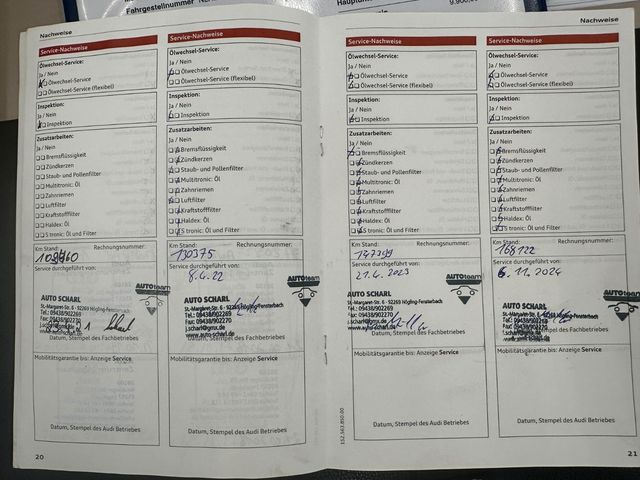 Fahrgestellnummer
9.900,0
Nachweise
Service-Nachweise
Ölwechsel-Service:
Ja / Nein
Ölwechsel-Service
Ölwechsel-Service (flexibel)
Inspektion:
Ja / Nein
Inspektion
Zusatzarbeiten:
Ja / Nein
Bremsflüssigkeit
Zündkerzen
Staub- und Pollenfilter
Multitronic: Öl
Zahnriemen
Luftfilter
Kraftstofffilter
Haldex: Öl
S tronic: Öl und Filter
Km Stand: Rechnungsnummer:
Service durchgeführt von:
AUTOteam
AUTO SCHARL
St.-Margaret-Str. 6 - 92269 Högling-Fensterbach
Tel.: 09438/902269
Fax: 09438/902270
Datum, Stempel des Fachbetriebes
Mobilitätsgarantie bis: Anzeige Service
Datum, Stempel des Audi Betriebes
20
Service-Nachweise
Ölwechsel-Service:
Ja / Nein
Ölwechsel-Service
Ölwechsel-Service (flexibel)
Inspektion:
Ja / Nein
Inspektion
Zusatzarbeiten:
Ja / Nein
Bremsflüssigkeit
Zündkerzen
Staub- und Pollenfilter
Multitronic: Öl
Zahnriemen
Luftfilter
Kraftstofffilter
Haldex: Öl
S tronic: Öl und Filter
Km Stand: Rechnungsnummer:
130375
Service durchgeführt von:
8.4.22
AUTOteam
AUTO SCHARL
St.-Margaret-Str. 6 - 92269 Högling-Fensterbach
Tel.: 09438/902269
Fax: 09438/902270
j.scharl@gmx.de
www.auto-scharl.de
Datum, Stempel des Fachbetriebes
Mobilitätsgarantie bis: Anzeige Service
Datum, Stempel des Audi Betriebes
Nachweise
Service-Nachweise
Ölwechsel-Service:
Ja / Nein
Ölwechsel-Service
Ölwechsel-Service (flexibel)
Inspektion:
Ja / Nein
Inspektion
Zusatzarbeiten:
Ja / Nein
Bremsflüssigkeit
Zündkerzen
Staub- und Pollenfilter
Multitronic: Öl
Zahnriemen
Luftfilter
Kraftstofffilter
Haldex: Öl
S tronic: Öl und Filter
Km Stand: Rechnungsnummer:
Service durchgeführt von:
21.4.2023
AUTOteam
AUTO SCHARL
St.-Margaret-Str. 6 - 92269 Högling-Fensterbach
Tel.: 09438/902269
Fax: 09438/902270
Datum, Stempel des Fachbetriebes
Mobilitätsgarantie bis: Anzeige Service
Datum, Stempel des Audi Betriebes
152.562.850.00
Service-Nachweise
Ölwechsel-Service:
Ja / Nein
Ölwechsel-Service
Ölwechsel-Service (flexibel)
Inspektion:
Ja / Nein
Inspektion
Zusatzarbeiten:
Ja / Nein
Bremsflüssigkeit
Zündkerzen
Staub- und Pollenfilter
Multitronic: Öl
Zahnriemen
Luftfilter
Kraftstofffilter
Haldex: Öl
S tronic: Öl und Filter
Km Stand: Rechnungsnummer:
168122
Service durchgeführt von:
6.11.2024
AUTOteam
AUTO SCHARL
St.-Margaret-Str. 6 - 92269 Högling-Fensterbach
Tel.: 09438/902269
Fax: 09438/902270
j.scharl@gmx.de
Datum, Stempel des Fachbetriebes
Mobilitätsgarantie bis: Anzeige Service
Datum, Stempel des Audi Betriebes
21